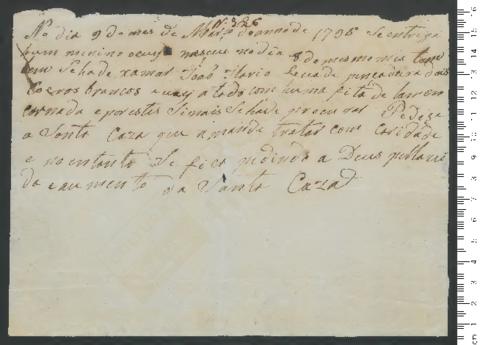 Nº 326
No dia 9 do mes de Março do anno de 1795 se entrega
hum menino o coal nasceu no dia 8 do mesmo mes tem
Se hade xamar João Hilario Leva de
Coeiros brancos e vay atado com huma fita de
encarnada e por estes Sinais Se hade procurar Pedese
a Santa Caza que a mande tratar com Caridade
e no entanto Se fica pedindo a Deus pello
da e aumento da Santa Caza